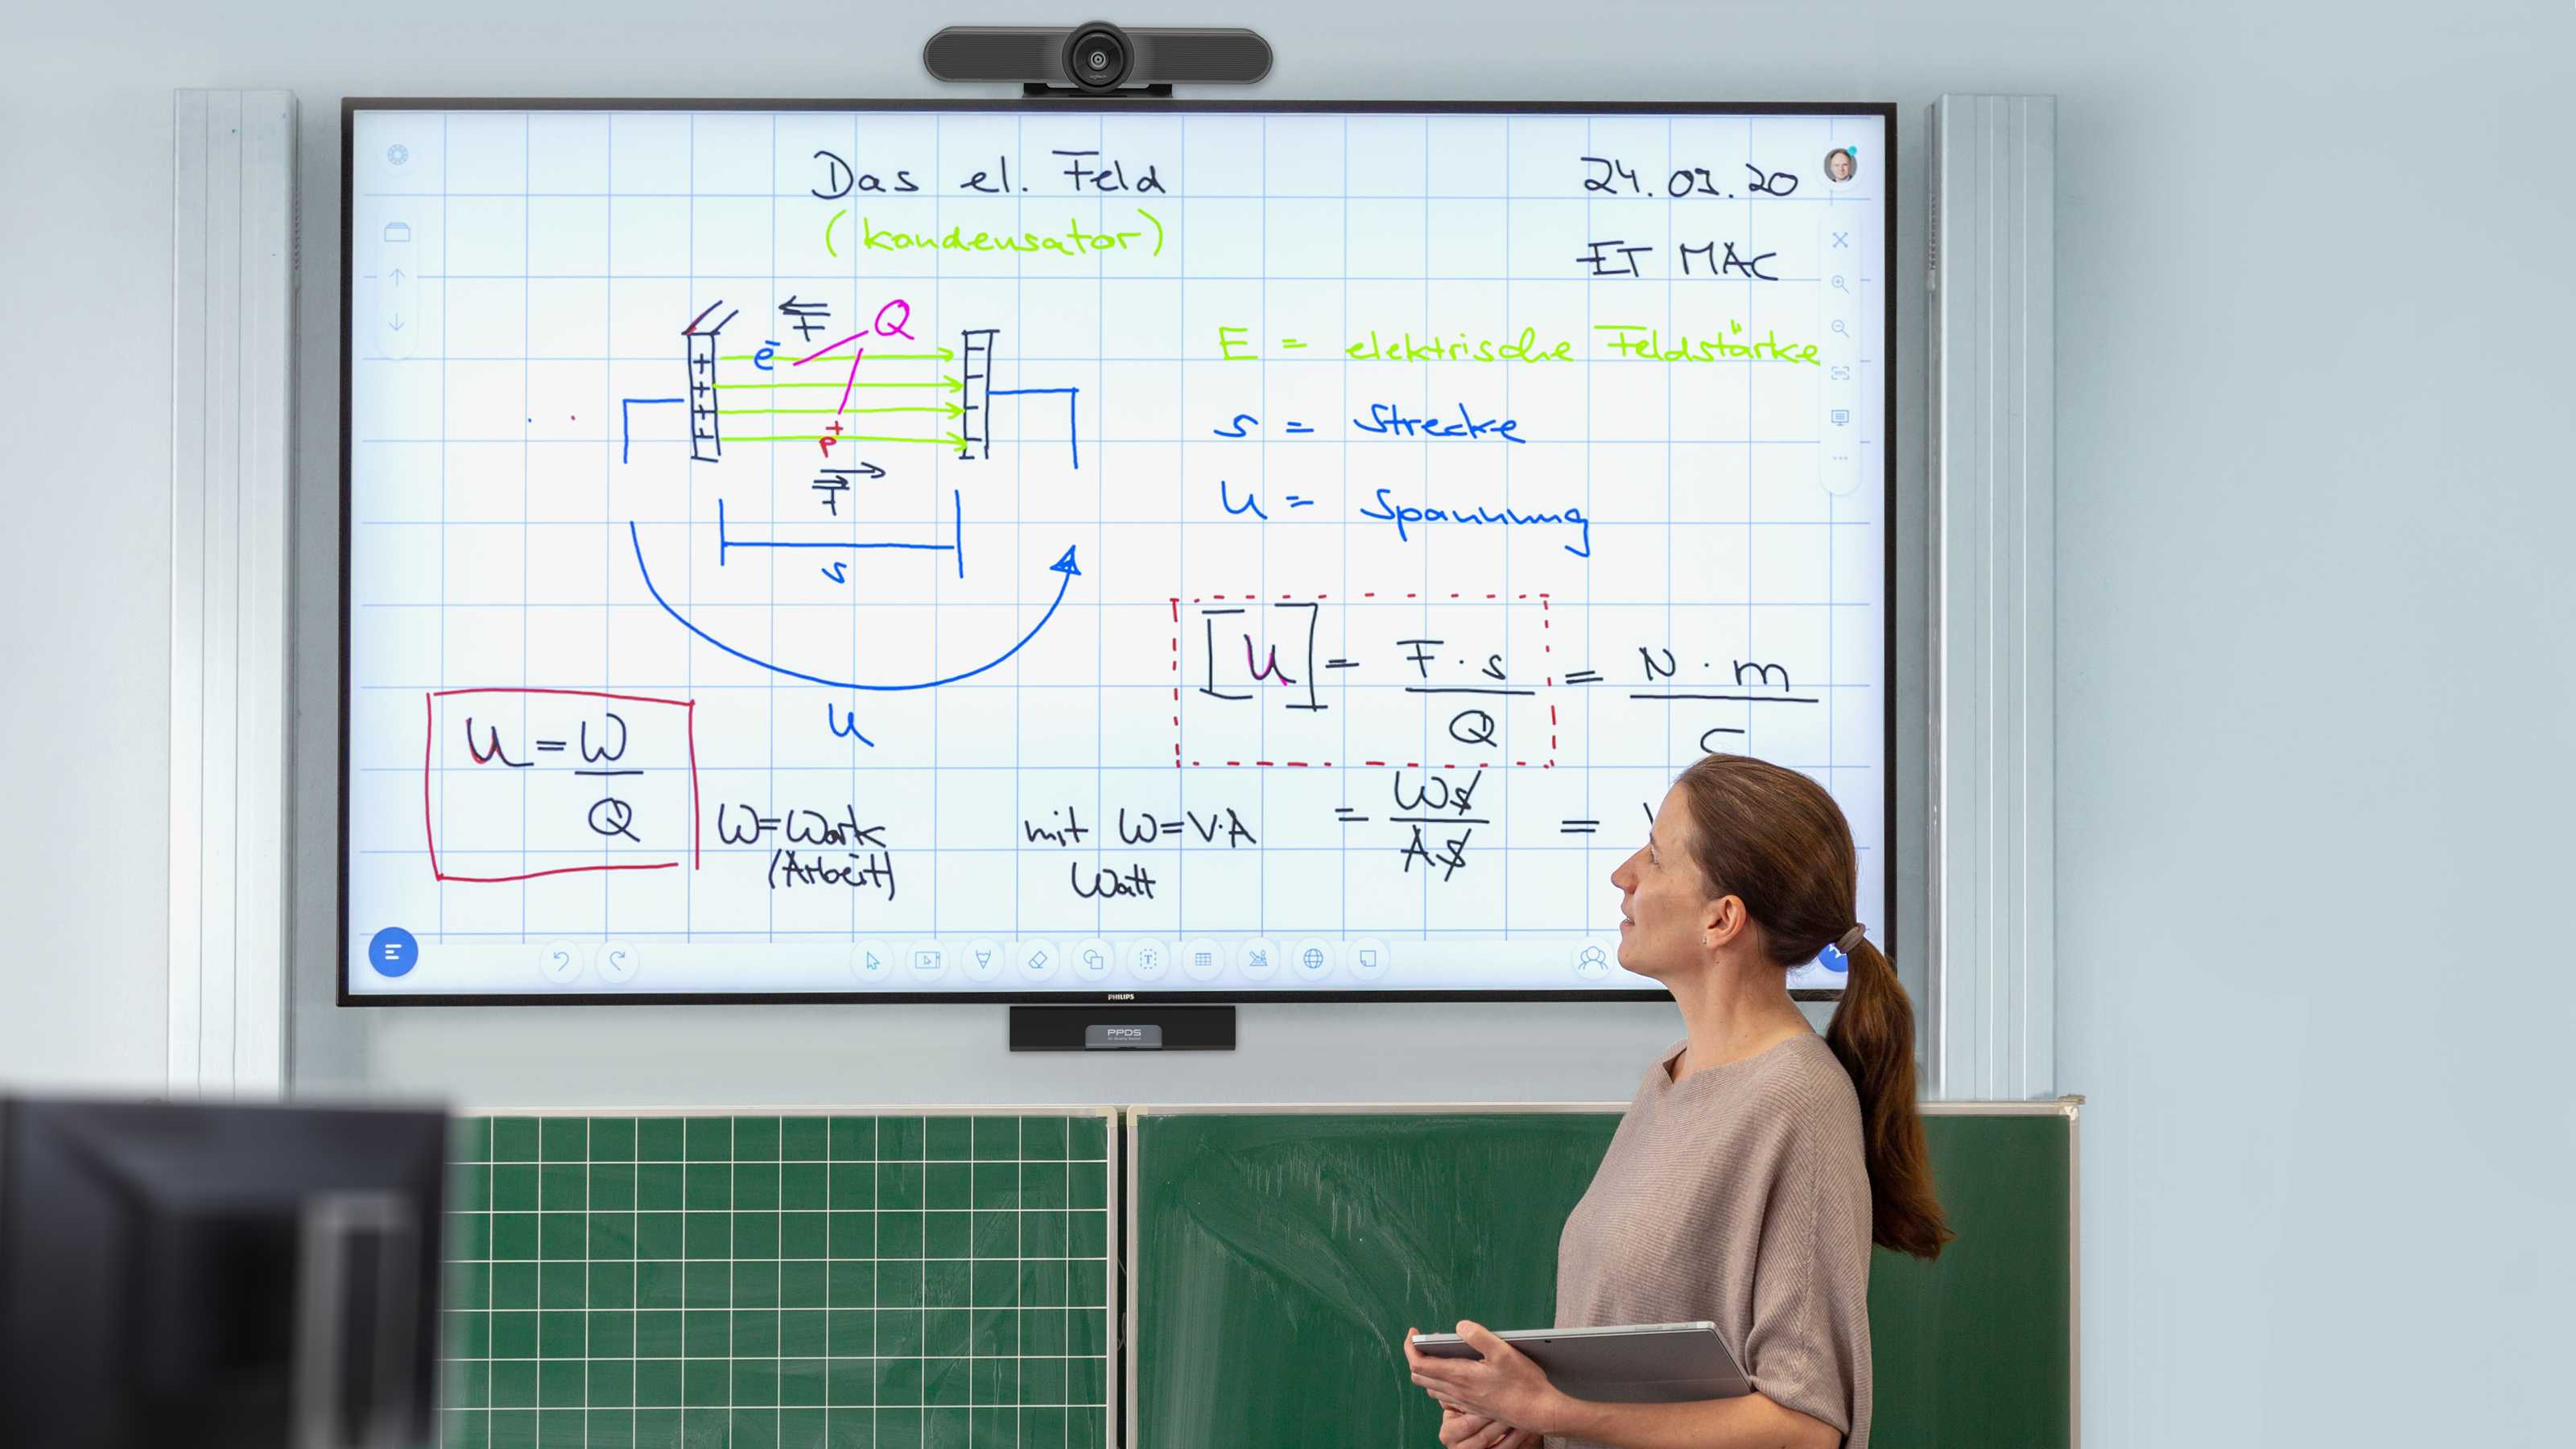 Das el. Feld
(Kondensator)
24.09.20
ET MAC
F
Q
e-
+
+
+
+
p+
F
s
U
E = elektrische Feldstärke
s = Strecke
U = Spannung
[U] = F · s / Q = N · m / C
U = W / Q
W = Work
(Arbeit)
mit W = V·A
Watt
= Ws / As =
PHILIPS
PPDS
logitech